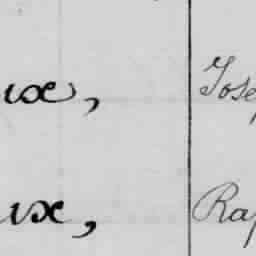 ux, Jose
ux, Rap